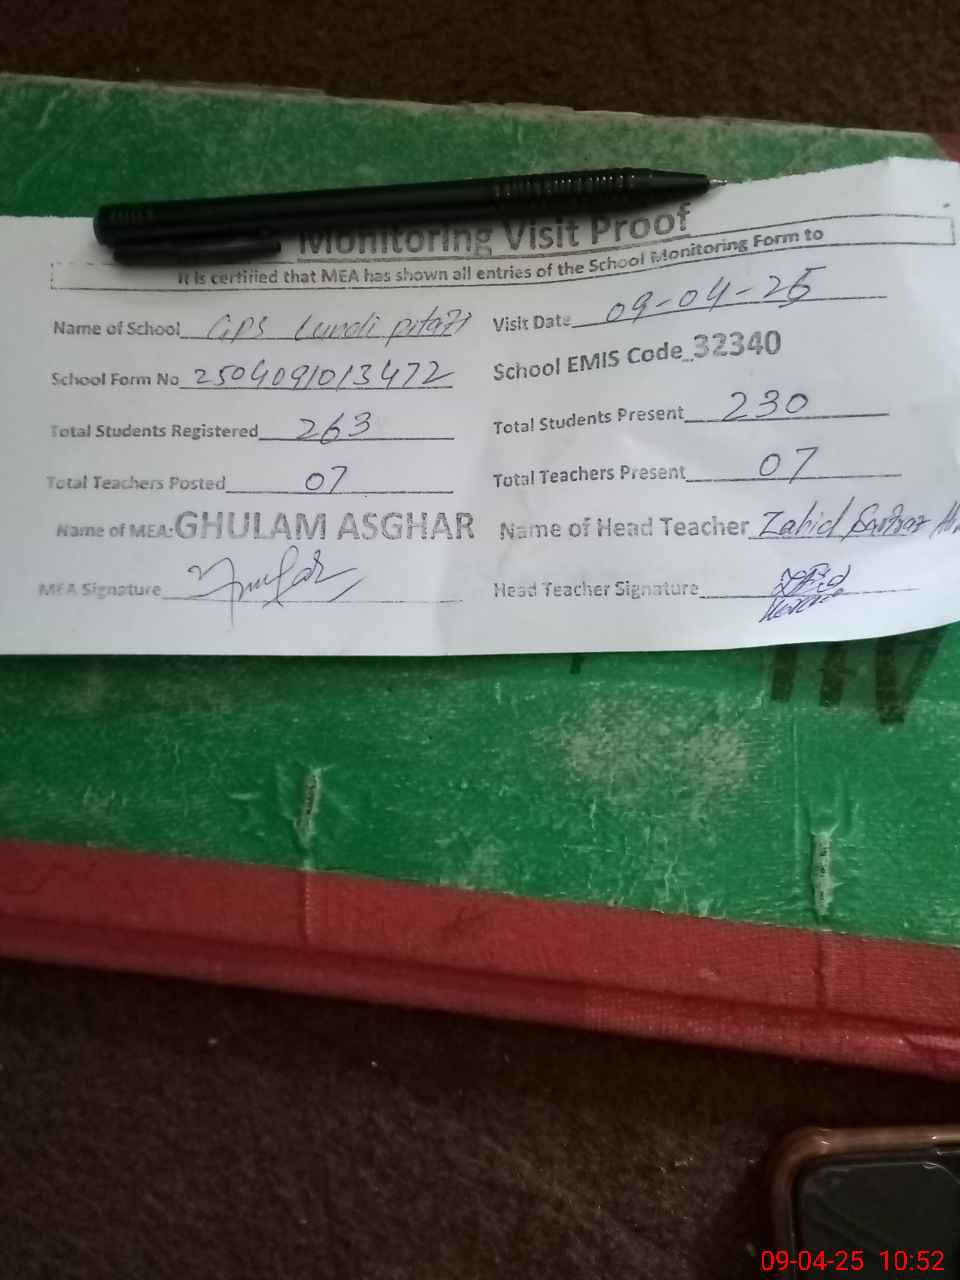 Monitoring Visit Proof
It is certified that MEA has shown all entries of the School Monitoring Form to
Name of School GPS Lundi pitafi Visit Date 09-04-25
School Form No 2504091013472 School EMIS Code 32340
Total Students Registered 263 Total Students Present 230
Total Teachers Posted 07 Total Teachers Present 07
Name of MEA: GHULAM ASGHAR Name of Head Teacher Zahid
MEA Signature Head Teacher Signature
09-04-25 10:52